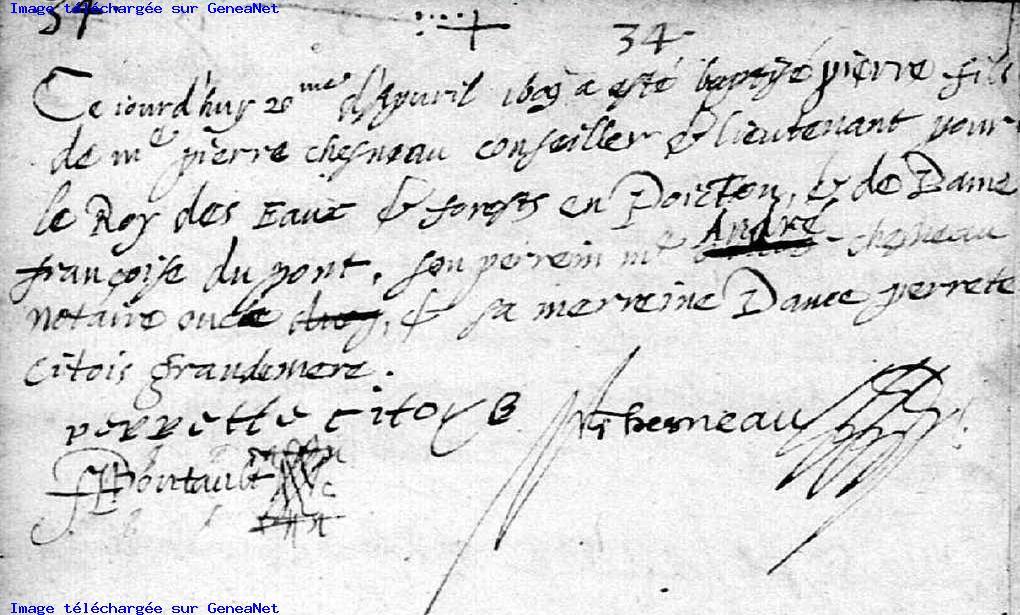 Image téléchargée sur GeneaNet
34
34
Ce iourd'huy 20me d'Apuril 1609 a esté baptizé pierre fils
de me pierre chesneau conseiller & lieutenant pour
le Roy des Eaux & forests en Poictou, & de Dame
françoise du pont, son perrein me André chesneau
notaire oncle & sa merreine Dame perrete
citois grandemere.
perrette citoys
Chesneau
Image téléchargée sur GeneaNet